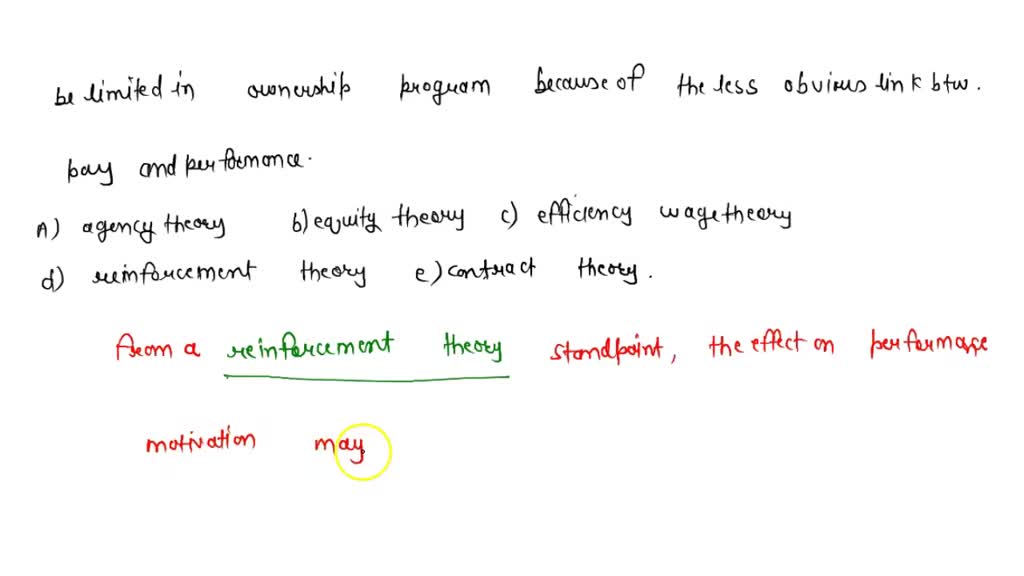 be limited in ownership program because of the less obvious link btw.
pay and performance.
A) agency theory b) equity theory c) efficiency wage theory
d) reinforcement theory e) contract theory.
From a reinforcement theory standpoint, the effect on performage
motivation may